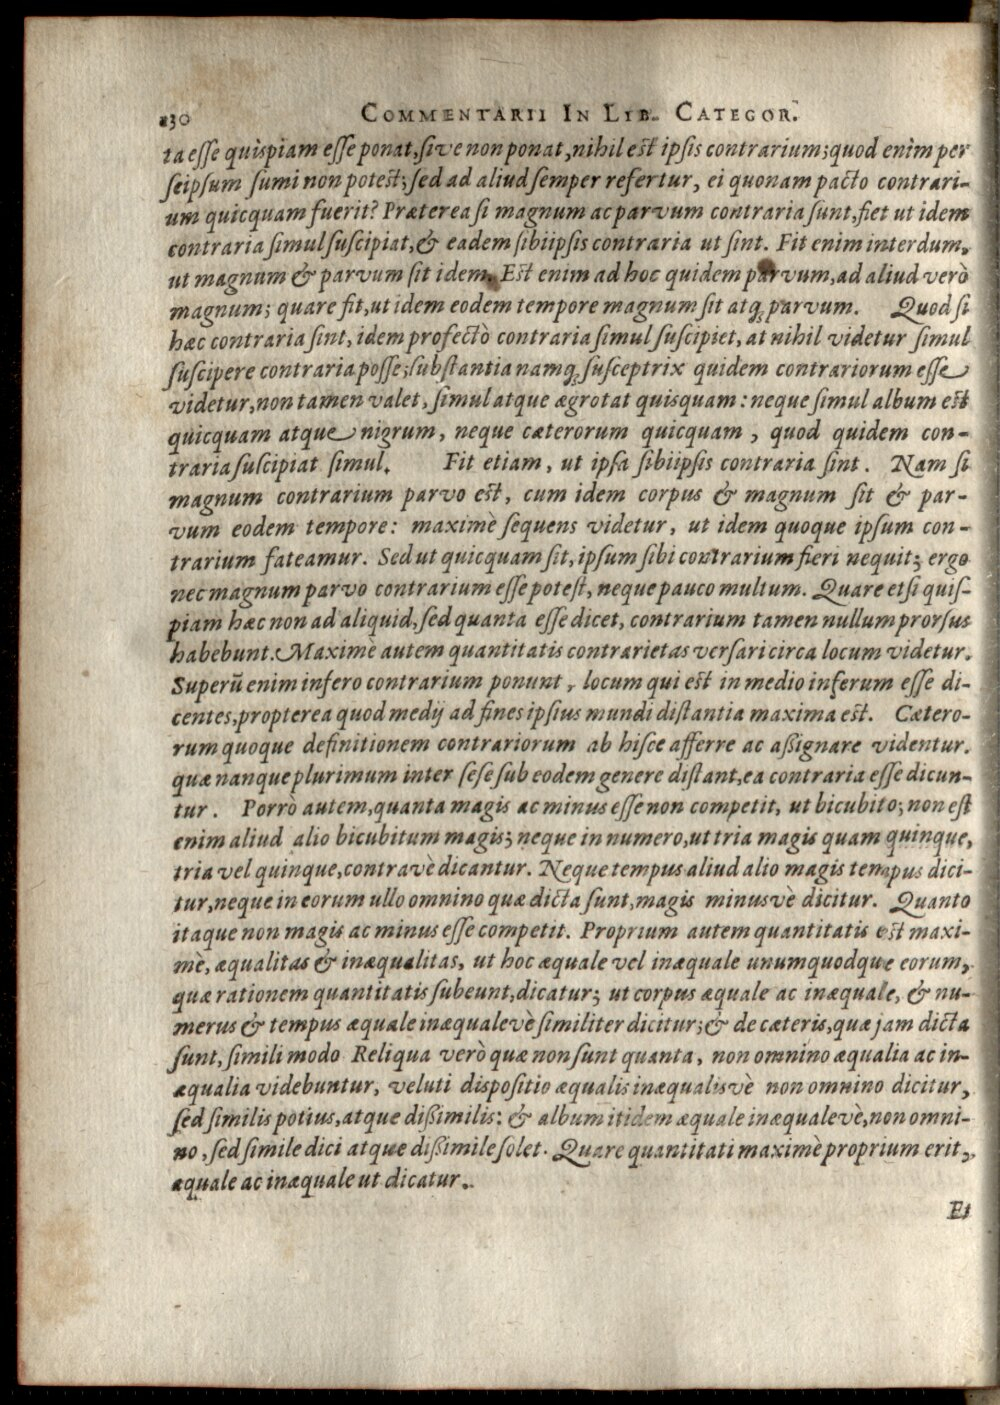 130 COMMENTARII IN LIB. CATEGOR.
ta esse quispiam esse ponat, sive non ponat, nihil est ipsis contrarium; quod enim per
seipsum sumi non potest; sed ad aliud semper refertur, ei quonam pacto contrari-
um quicquam fuerit? Præterea si magnum ac parvum contraria sunt, fiet ut idem
contraria simul suscipiat, & eadem sibiipsis contraria ut sint. Fit enim interdum,
ut magnum & parvum sit idem. Est enim ad hoc quidem parvum, ad aliud verò
magnum; quare fit, ut idem eodem tempore magnum sit atq; parvum. Quod si
hæc contraria sint, idem profectò contraria simul suscipiet, at nihil videtur simul
suscipere contraria posse; substantia namq; susceptrix quidem contrariorum esse
videtur, non tamen valet, simul atque ægrotat quisquam: neque simul album est
quicquam atque nigrum, neque cæterorum quicquam, quod quidem con-
traria suscipiat simul. Fit etiam, ut ipsa sibiipsis contraria sint. Nam si
magnum contrarium parvo est, cum idem corpus & magnum sit & par-
vum eodem tempore: maximè sequens videtur, ut idem quoque ipsum con-
trarium fateamur. Sed ut quicquam sit, ipsum sibi contrarium fieri nequit; ergo
nec magnum parvo contrarium esse potest, neque pauco multum. Quare etsi quis-
piam hæc non ad aliquid, sed quanta esse dicet, contrarium tamen nullum prorsus
habebunt. Maximè autem quantitatis contrarietas versari circa locum videtur.
Superū enim infero contrarium ponunt, locum qui est in medio inferum esse di-
centes, propterea quod medij ad fines ipsius mundi distantia maxima est. Cætero-
rum quoque definitionem contrariorum ab hisce afferre ac aßignare videntur.
quæ nanque plurimum inter sese sub eodem genere distant, ea contraria esse dicun-
tur. Porrò autem, quanta magis ac minus esse non competit, ut bicubito; non est
enim aliud alio bicubitum magis; neque in numero, ut tria magis quam quinque,
tria vel quinque, contravè dicantur. Neque tempus aliud alio magis tempus dici-
tur, neque in eorum ullo omnino quæ dicta sunt, magis minusvè dicitur. Quanto
itaque non magis ac minus esse competit. Proprium autem quantitatis est maxi-
mè, æqualitas & inæqualitas, ut hoc æquale vel inæquale unumquodque eorum,
quæ rationem quantitatis subeunt, dicatur; ut corpus æquale ac inæquale, & nu-
merus & tempus æquale inæqualevè similiter dicitur; & de cæteris, quæ jam dicta
sunt, simili modo Reliqua verò quæ non sunt quanta, non omnino æqualia ac in-
æqualia videbuntur, veluti dispositio æqualis inæqualisvè non omnino dicitur,
sed similis potius, atque dißimilis: & album itidem æquale inæqualevè, non omni-
no, sed simile dici atque dißimile solet. Quare quantitati maximè proprium erit,
æquale ac inæquale ut dicatur.
Et